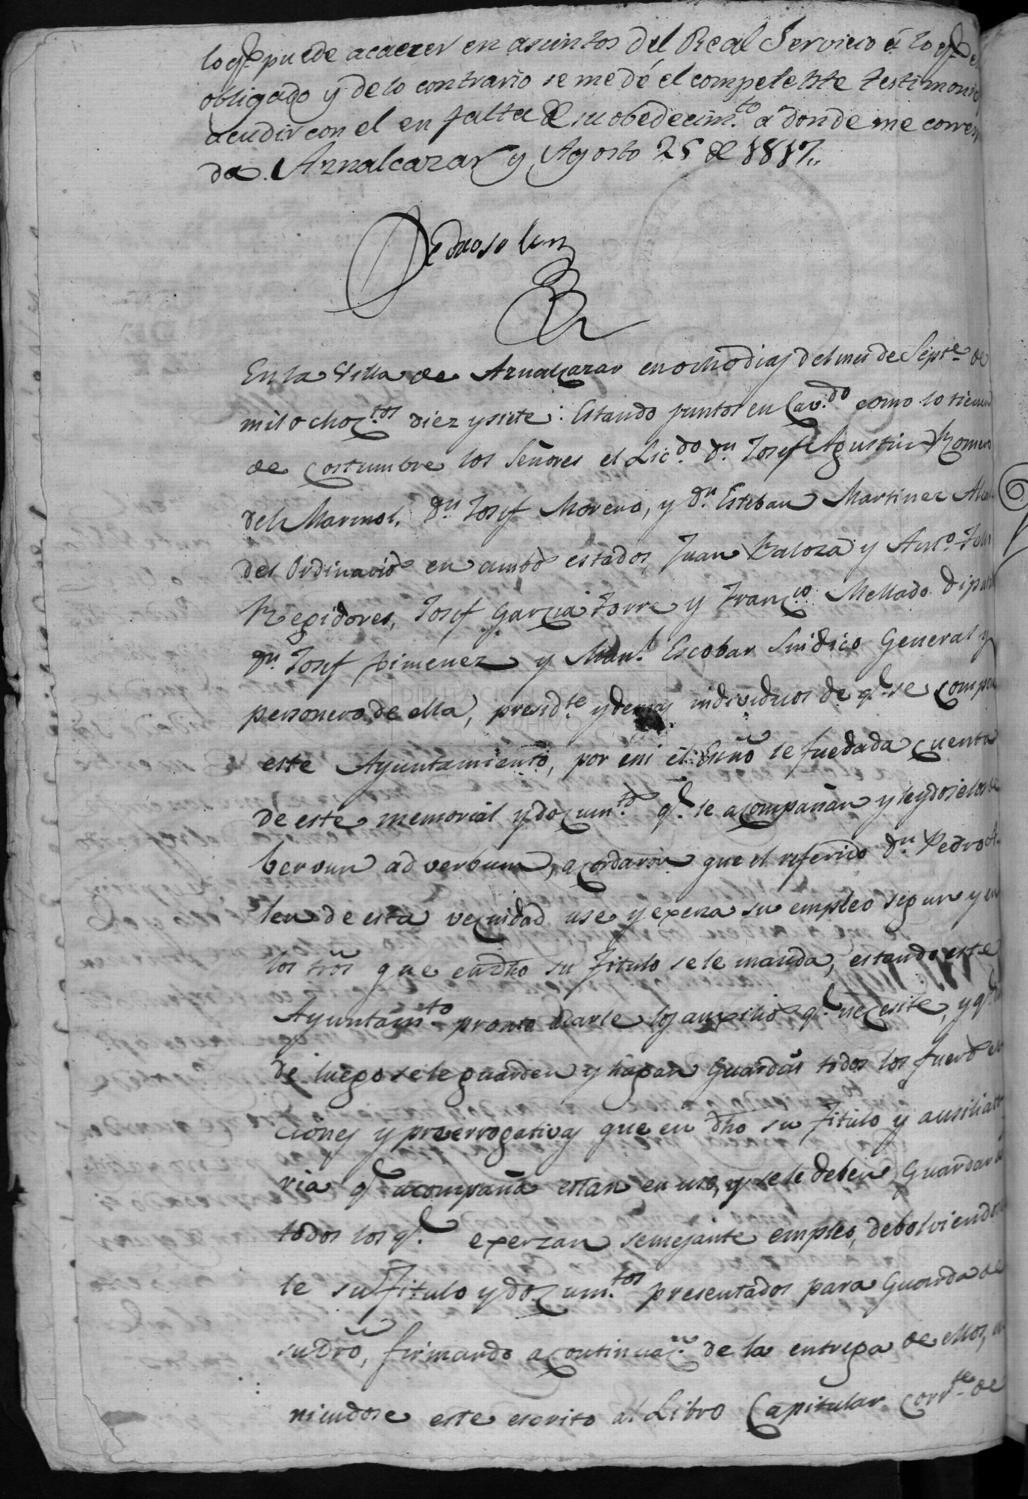 lo q.e puede acaecer en asuntos del Real Servicio á lo q.e
obligado y de lo contrario se me dé el competente testimonio
acudir con el en falta de su obedecim.to á donde me corres
da. Aznalcazar y Agosto 25 de 1817,,
Pedro solen
En la Villa de Aznalcazar en ocho dias del mes de Sept.e de
mil ochoz.tos diez y siete: Estando juntos en Cav.do como lo tienen
de costumbre los Señores el Lic.do d.n Josef Agustin Romero
del Marmol, d.n Josef Moreno, y d.n Esteban Martinez Alcal
des Ordinarios en ambos estados, Juan y Ant.o
Regidores, Josef Garcia Torre y Fran.co Mellado diputa
d.n Josef Ximenez y Man.l Escobar Sindico General y
personero de ella, presid.te y demas individuos de q.e se compo
este Ayuntamiento, por mi el Essño se fue dada cuenta
de este memorial y documt.os q.e le acompañan y leydoselos
bervun ad verbum, acordaron que el referido d.n Pedro
len de esta vecindad use y exerza su empleo segun y en
los tros que en dho su Titulo se le manda, estando este
Ayuntam.to pronto á darle los auxilios q.e necesite, y q.e
de luego se le guarden y hagan guardar todos los fueros
ciones y prerrogativas que en dho su Titulo y ausiliato
ria q.e acompaña estan en uso, y se le deben guardar á
todos los q.e exerzan semejante empleo, debolviendo
le su Titulo y documt.os presentados para guarda de
su dro, firmando a continuaz.n de la entrega de ellos,
niendose este escrito al Libro Capitular corr.te de